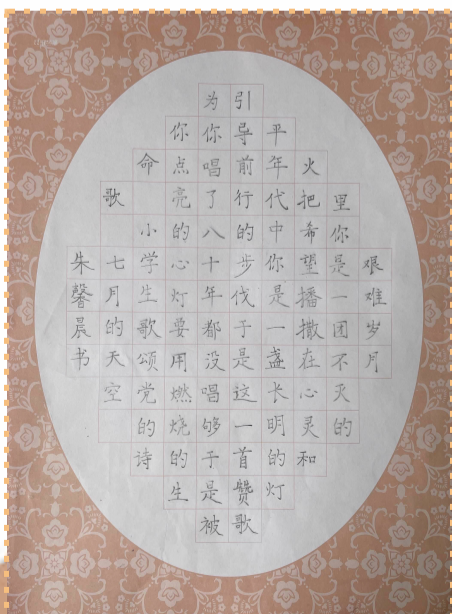 艰难岁月
里你是一团不灭的
火把希望播撒在心灵和
平年代中你是一盏长明的灯
引导前行的步伐于是这一首赞歌
为你唱了八十年都没唱够于是被
你点亮的心灯要用燃烧的生
命 小学生歌颂党的诗
歌 七月的天空
朱馨晨书